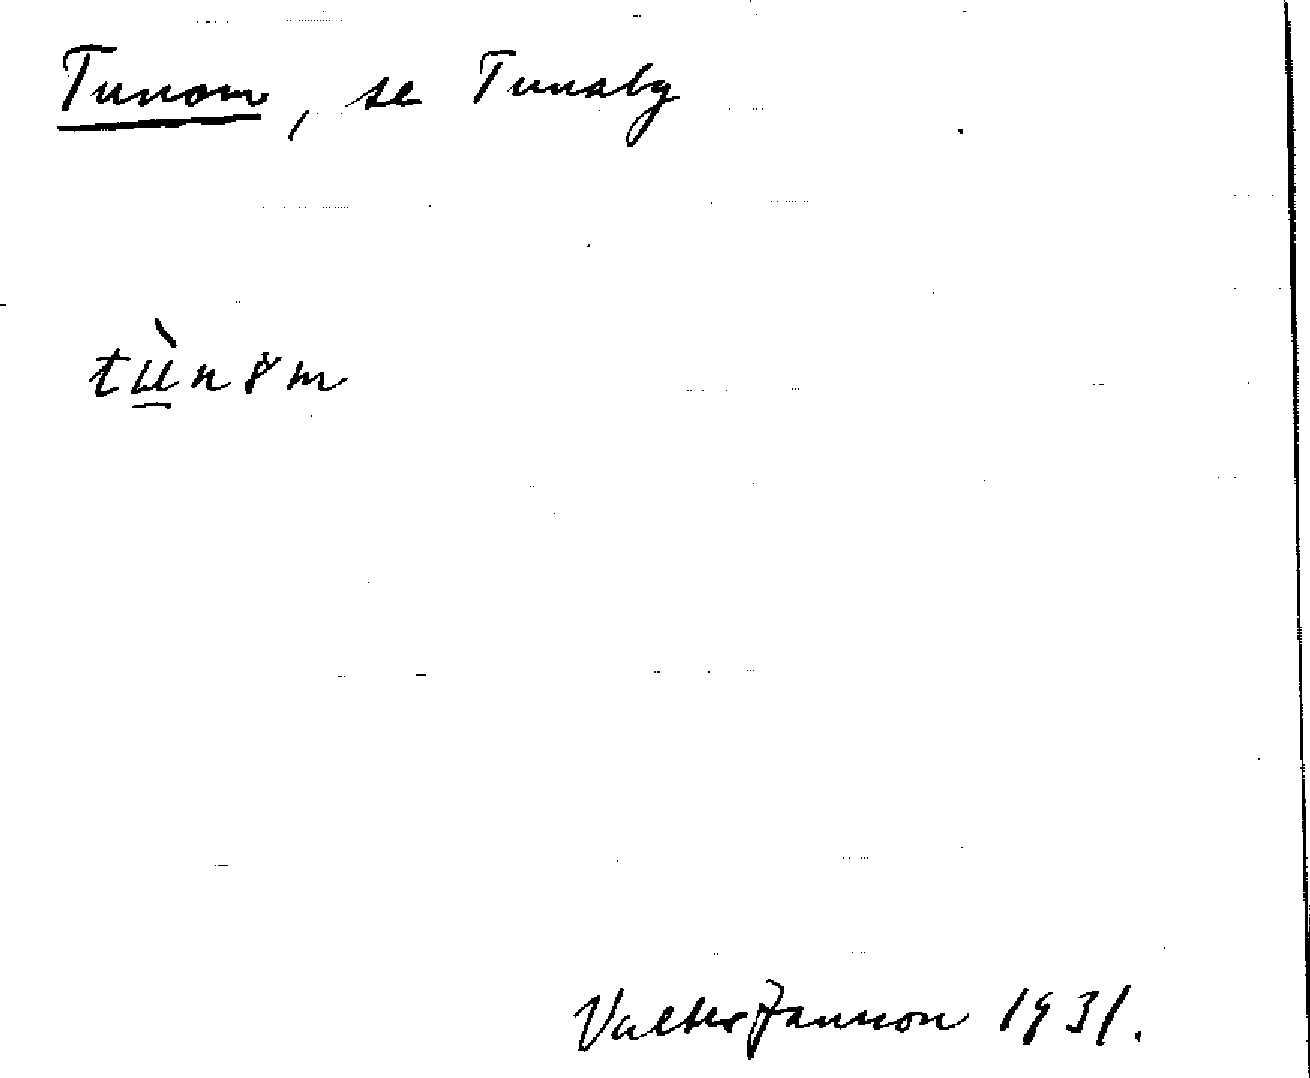 Tunom, se Tunaby
tù̱nɤm
Valter Jansson 1931.